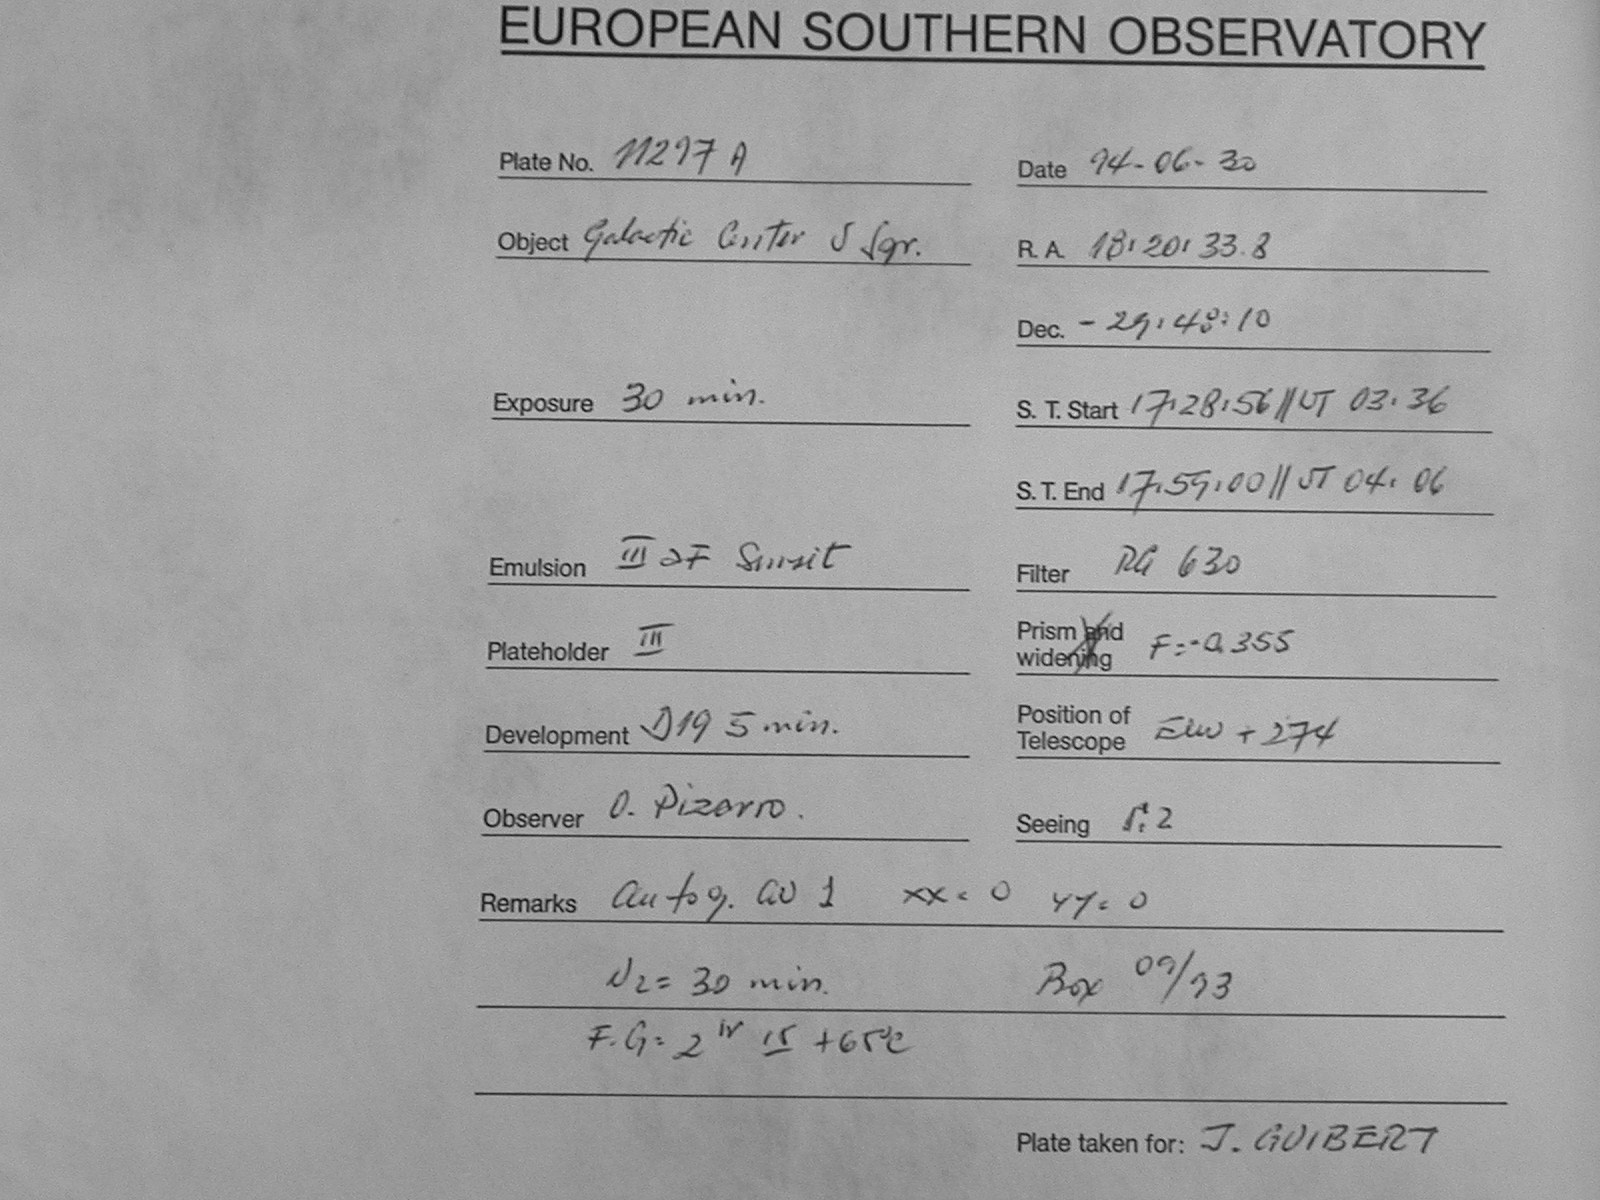 EUROPEAN SOUTHERN OBSERVATORY
Plate No. 11297 A
Date 94-06-30
Object Galactic Center J Sgr.
R. A. 18:20:33.8
Dec. -29:48:10
Exposure 30 min.
S. T. Start 17:28:56 // UT 03:36
S. T. End 17:59:00 // UT 04:06
Emulsion III aF
Filter RG 630
Plateholder III
Prism and widening F=-0.355
Development D19 5 min.
Position of Telescope + 274
Observer O. Pizarro.
Seeing
Remarks Autog. 1 xx= 0 yy= 0
N2= 30 min. Box 09/93
F.G= 2 hr 15 +65°C
Plate taken for: J. GUIBERT